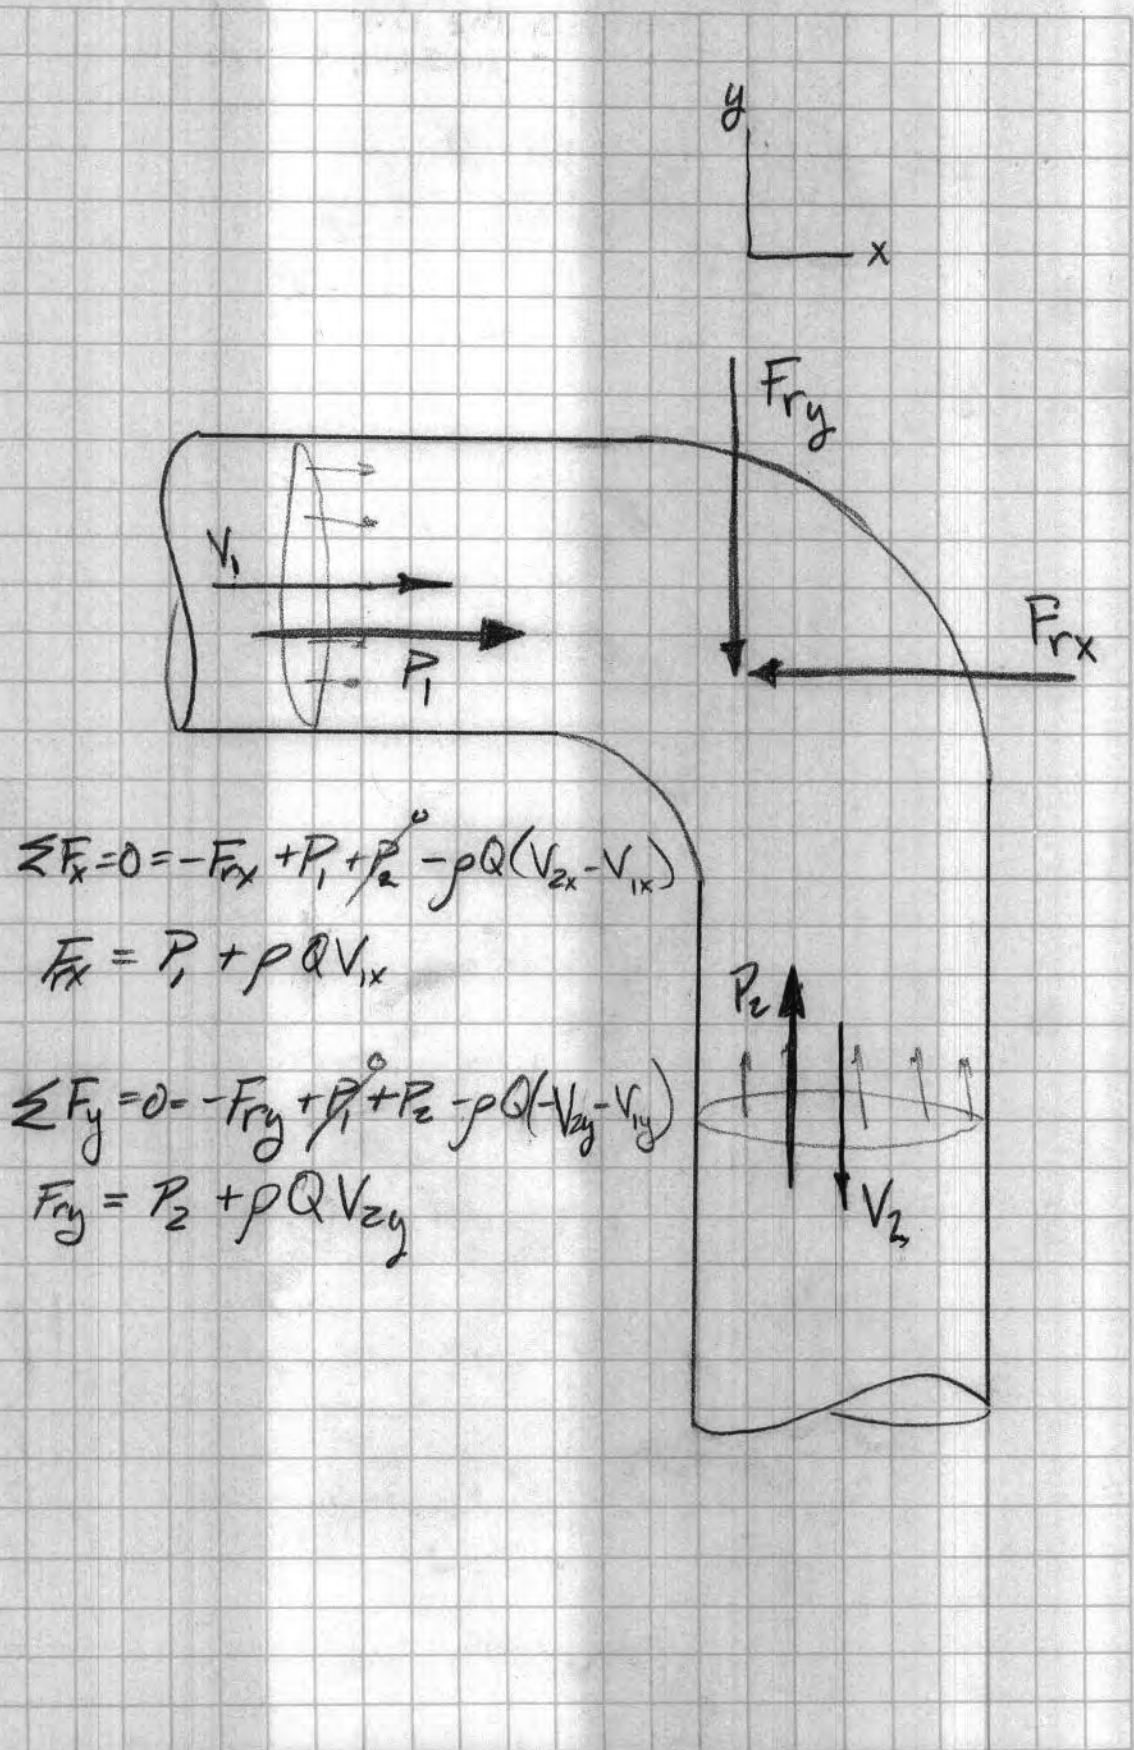 y
x
Fry
V₁
Frx
P₁
ΣFx=0=-Frx+P₁+P₂⁰-ρQ(V₂x-V₁x)
Frx = P₁ + ρQV₁x
P₂
ΣFy=0=-Fry+P₁⁰+P₂-ρQ(-V₂y-V₁y)
Fry = P₂ + ρQV₂y
V₂